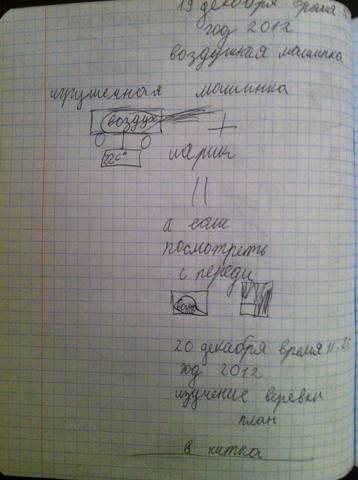 19 декабря время
год 2012
воздушная машинка
игрушечная машинка
воздух
+
шарик
=
а если
посмотреть
с переди
20 декабря время 11:25
год 2012
изучение верёвки
план
в нитка